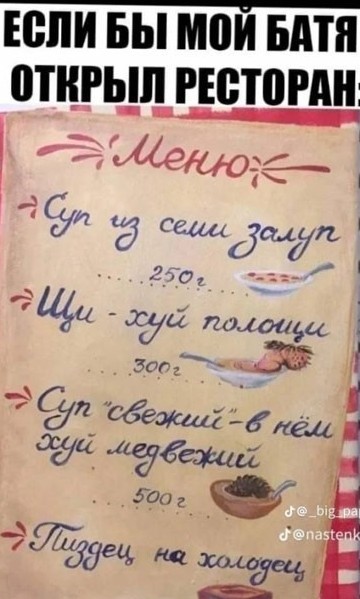 ЕСЛИ БЫ МОЙ БАТЯ
ОТКРЫЛ РЕСТОРАН:
Меню
Суп из семи залуп
250г
Щи - хуй полощи
300г
Суп "свежий" - в нём
хуй медвежий
500г
@_big_pa
@nastenk
Пиздец на холодец